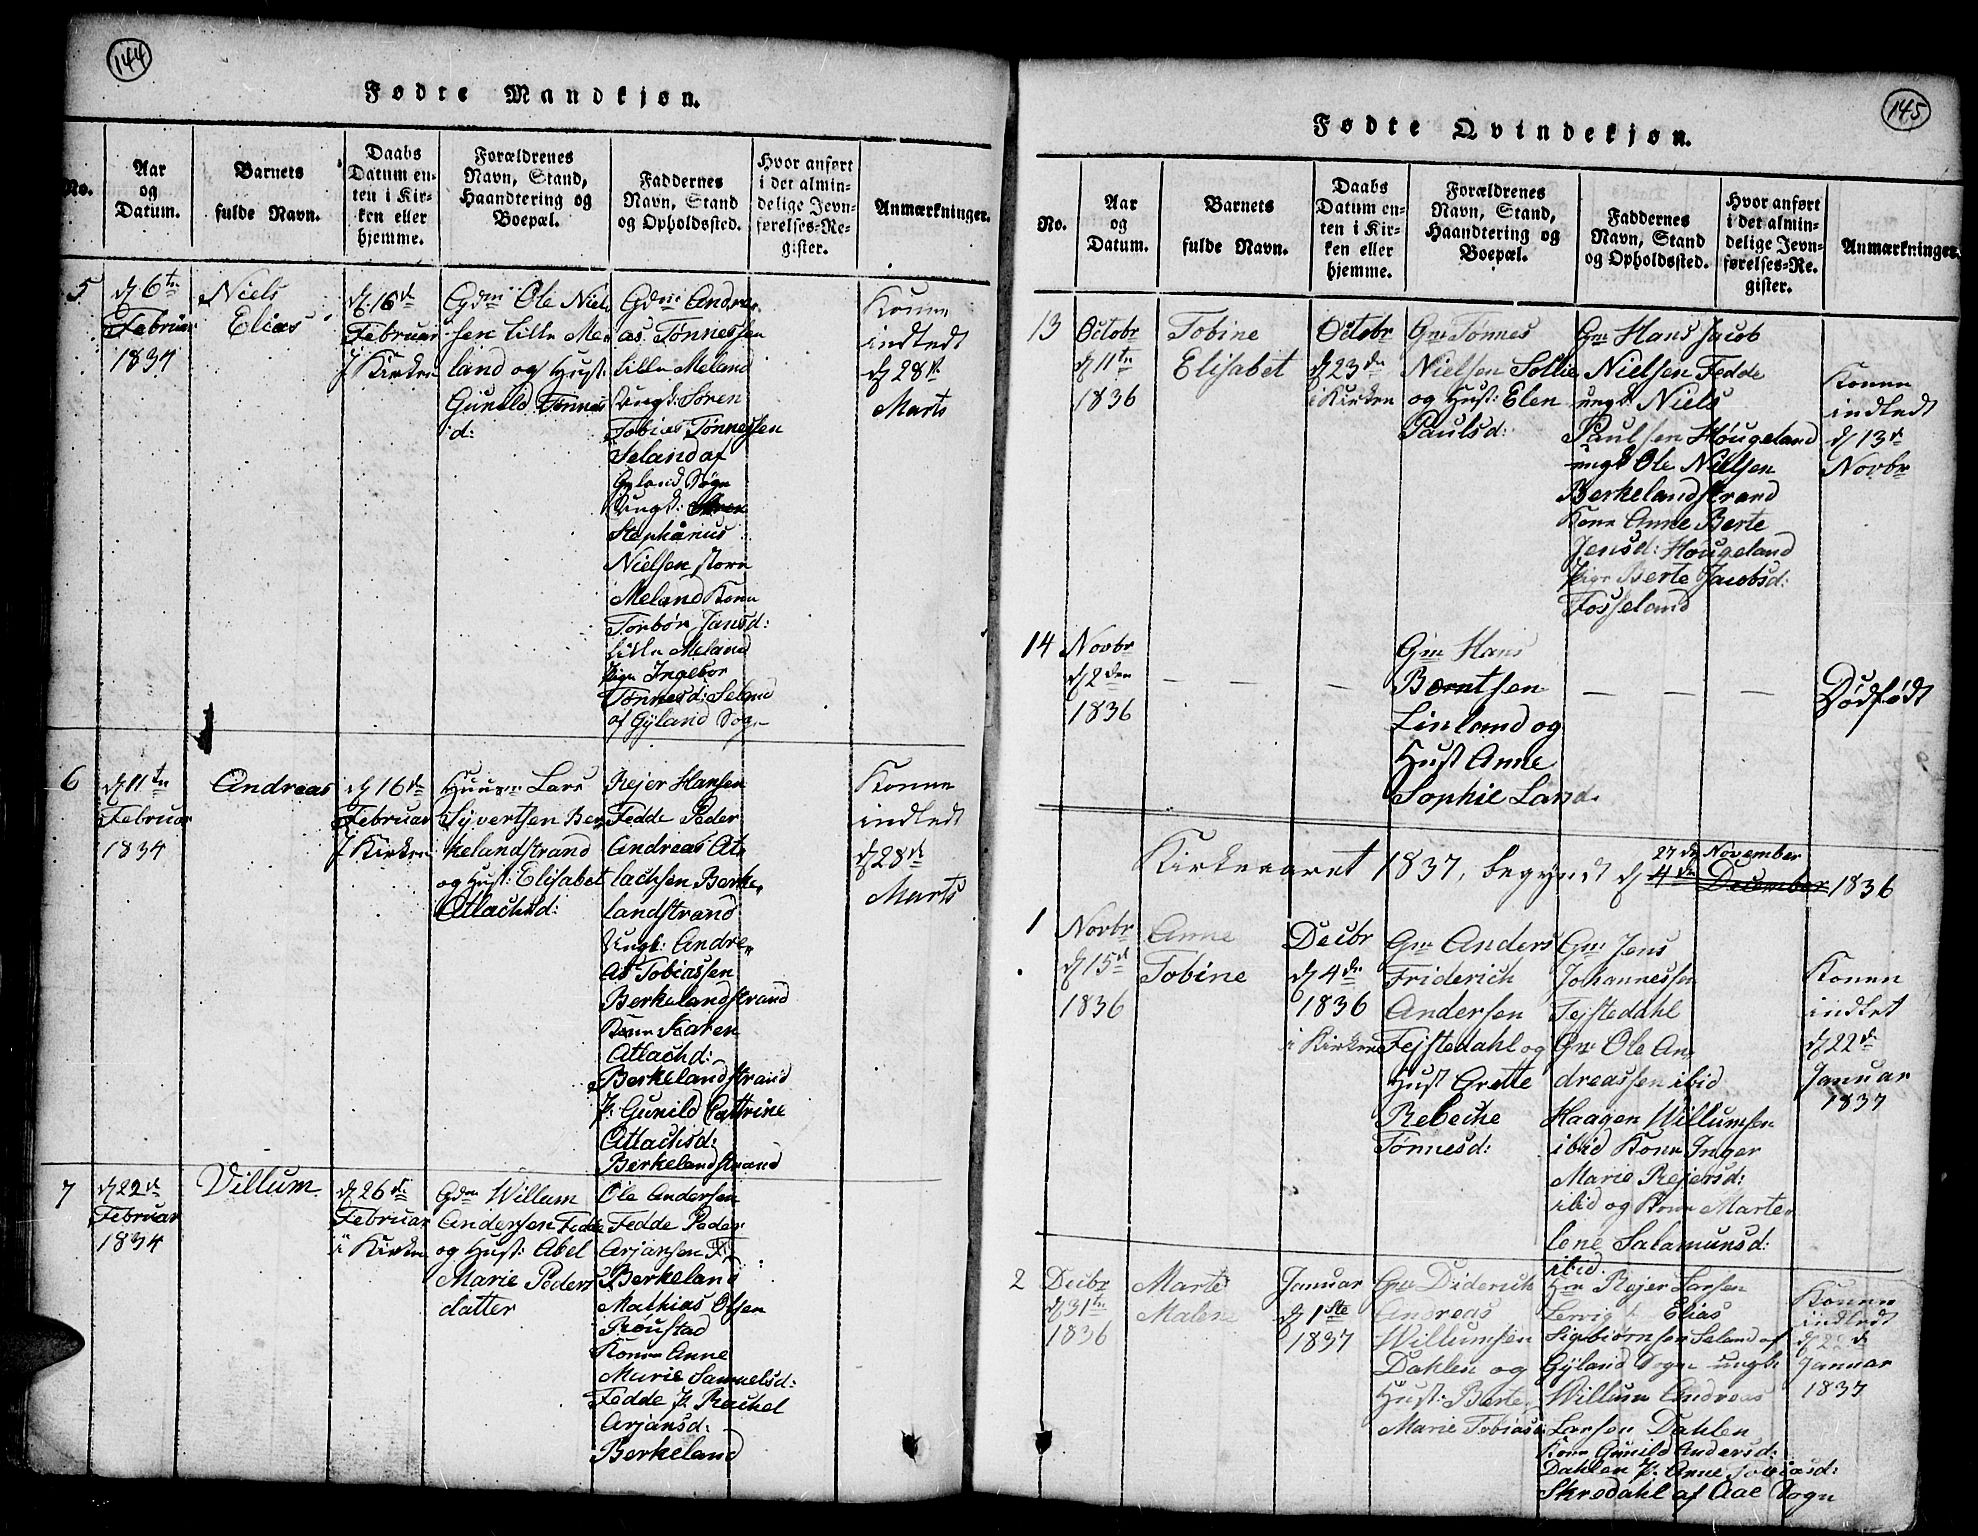 144
Fødte Mandkjøn.
No.
Aar
og
Datum.
Barnets
fulde Navn.
Daabs
Datum en-
ten i Kir-
ken eller
hjemme.
Forældrenes
Navn, Stand,
Haandtering og
Boepæl.
Faddernes
Navn, Stand
og Opholdssted.
Hvor anført
i det almin-
delige Jevn-
førelses-Re-
gister.
Anmærkninger.
5
d 6te
Februar
1834
Niels
Elias
d. 16de
Februar
i Kirken
Gdm Ole Niel-
sen Lille Me-
land og Hust:
Gunild Tønnes
d:
Gdm Andre-
as Tønnessen
Lille Meland
Ungk: Søren
Tobias Tønnessen
Seland af
Gyland Sogn
Ungk:
Stephanus
Nielsen store
Meland Kone
Torbor Jansd:
Lille Meland
Pige Ingebor
Tønnesd: Seland
af Gyland Sogn
Konen
indledt
d 28de
Marts
6
d 11te
Februar
1834
Andreas
d 16de
Februar
i Kirken
Huusm Lars
Syvertsen Ber-
kelandstrand
og Hust: Elisabet
Atlachsd:
Rejer Hansen
Fedde Peder
Andreas At-
lachsen Berke-
landstrand
Ungk: Andre-
as Tobiassen
Berkelandstrand
Kone Karen
Atlachd:
Berkelandstrand
P: Gunild Cathrine
Atlachsd:
Berkelandstrand
Konen
indledt
d 28de
Marts
7
d 22de
Februar
1834
Villum
d 26de
Februar
i Kirken
Gdm Willum
Andersen Fedde
og Hust: Abel
Marie Peders
datter
Ole Andersen
Fedde Peder
Arjansen
Berkeland
Mathias Olsen
Røustad
Kone Anne
Marie Samuelsd:
Fedde P. Rachel
Arjansd:
Berkeland
145
Fødte Qvindekjøn.
No.
Aar
og
Datum.
Barnets
fulde Navn.
Daabs
Datum en-
ten i Kir-
ken eller
hjemme.
Forældrenes
Navn, Stand,
Haandtering og
Boepæl.
Faddernes
Navn, Stand
og Opholdssted.
Hvor anført
i det almin-
delige Jevn-
førelses-Re-
gister.
Anmærkninger.
13
Octobr
d 11te
1836
Tobine
Elisabet
Octobr
d 23de
i Kirken
Gm Tønnes
Nielsen Sollie
og Hust: Elen
Paulsd:
Gm Hans Jacob
Nielsen Fedde
ungk: Niels
Paulsen Høugeland
ungk Ole Nielsen
Berkelandstrand
Kone Anne Berte
Jensd: Høugeland
Pige Berte Jacobsd:
Fosseland
Konen
indledt
d 13de
Novbr
14
Novbr
d 2den
1836
Gm Hans
Berntsen
Linland og
Hust Anne
Sophie Land.
Dødfødt
Kirkeaaret 1837, begyndt d 4de December 1836
27de November
1
Novbr
d 15de
1836
Anne
Tobine
Decbr
d 4de
1836
i Kirken
Gm Anders
Friderich
Andersen
Fejstedahl og
Hust Grette
Rebeche
Tønnesd:
Gm Jens
Johannessen
Fejstedahl
Gm Ole An-
dreassen ibid
Haagen Willumsen
ibid Kone Inger
Marie Rejersd:
ibid og Kone Marte
lene Salamunsd:
ibid.
Konen
indlet
d 22de
Januar
1837
2
Decbr
d 31te
1836
Marte
Malene
Januar
d 1ste
1837
Gm Diderich
Andreas
Willumsen
Dahlen og
Hust: Berte
Marie Tobiasd:
Hm Rejer Larsen
Lervig Elias
Sigbiørnsen Seland af
Gyland Sogn ungk:
Willum Andreas
Larsen Dahlen
Kone Gunild Andersd:
Dahlen P: Anne Tobiasd:
Skredahl af Aae Sogn
Konen
indledt
d 22de
Januar
1837